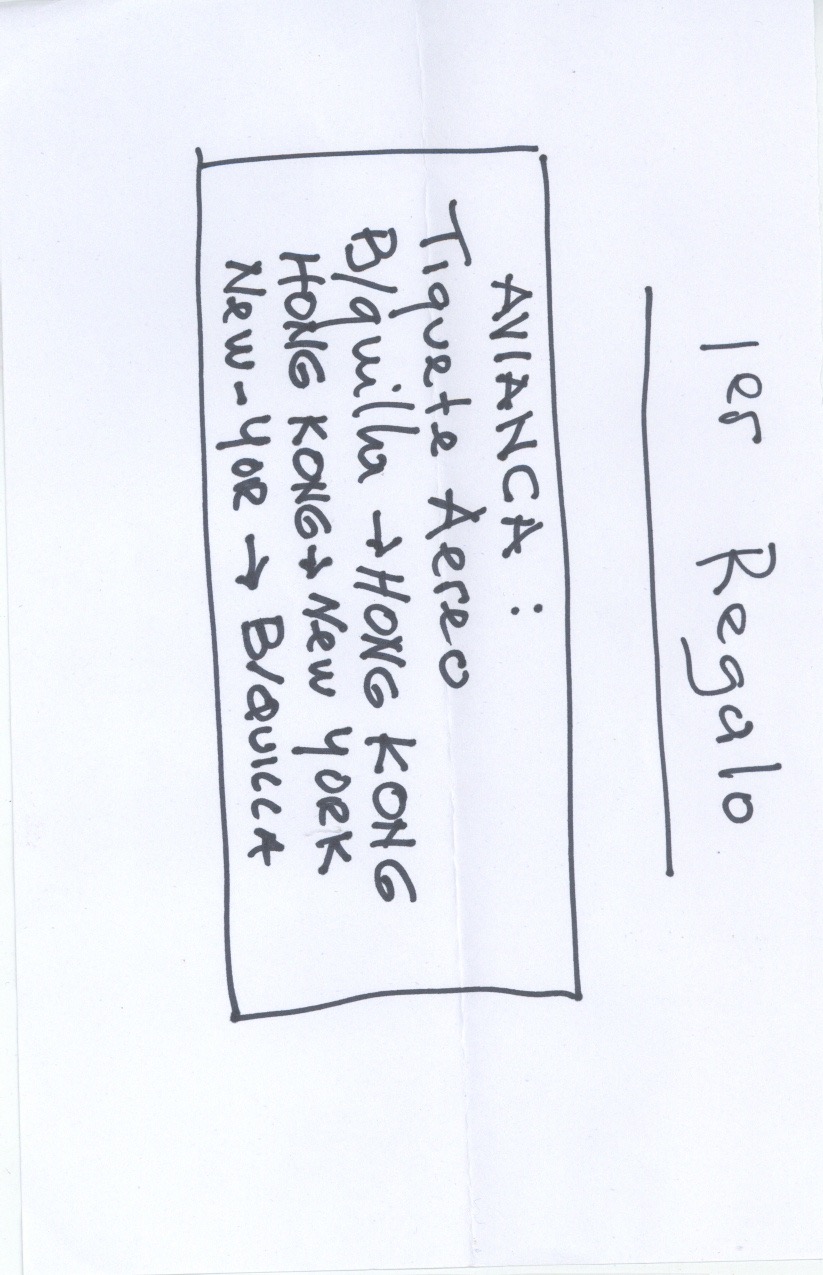 1er Regalo
AVIANCA :
Tiquete Aereo
B/quilla → HONG KONG
HONG KONG → New YORK
New-YOR → B/QUILLA